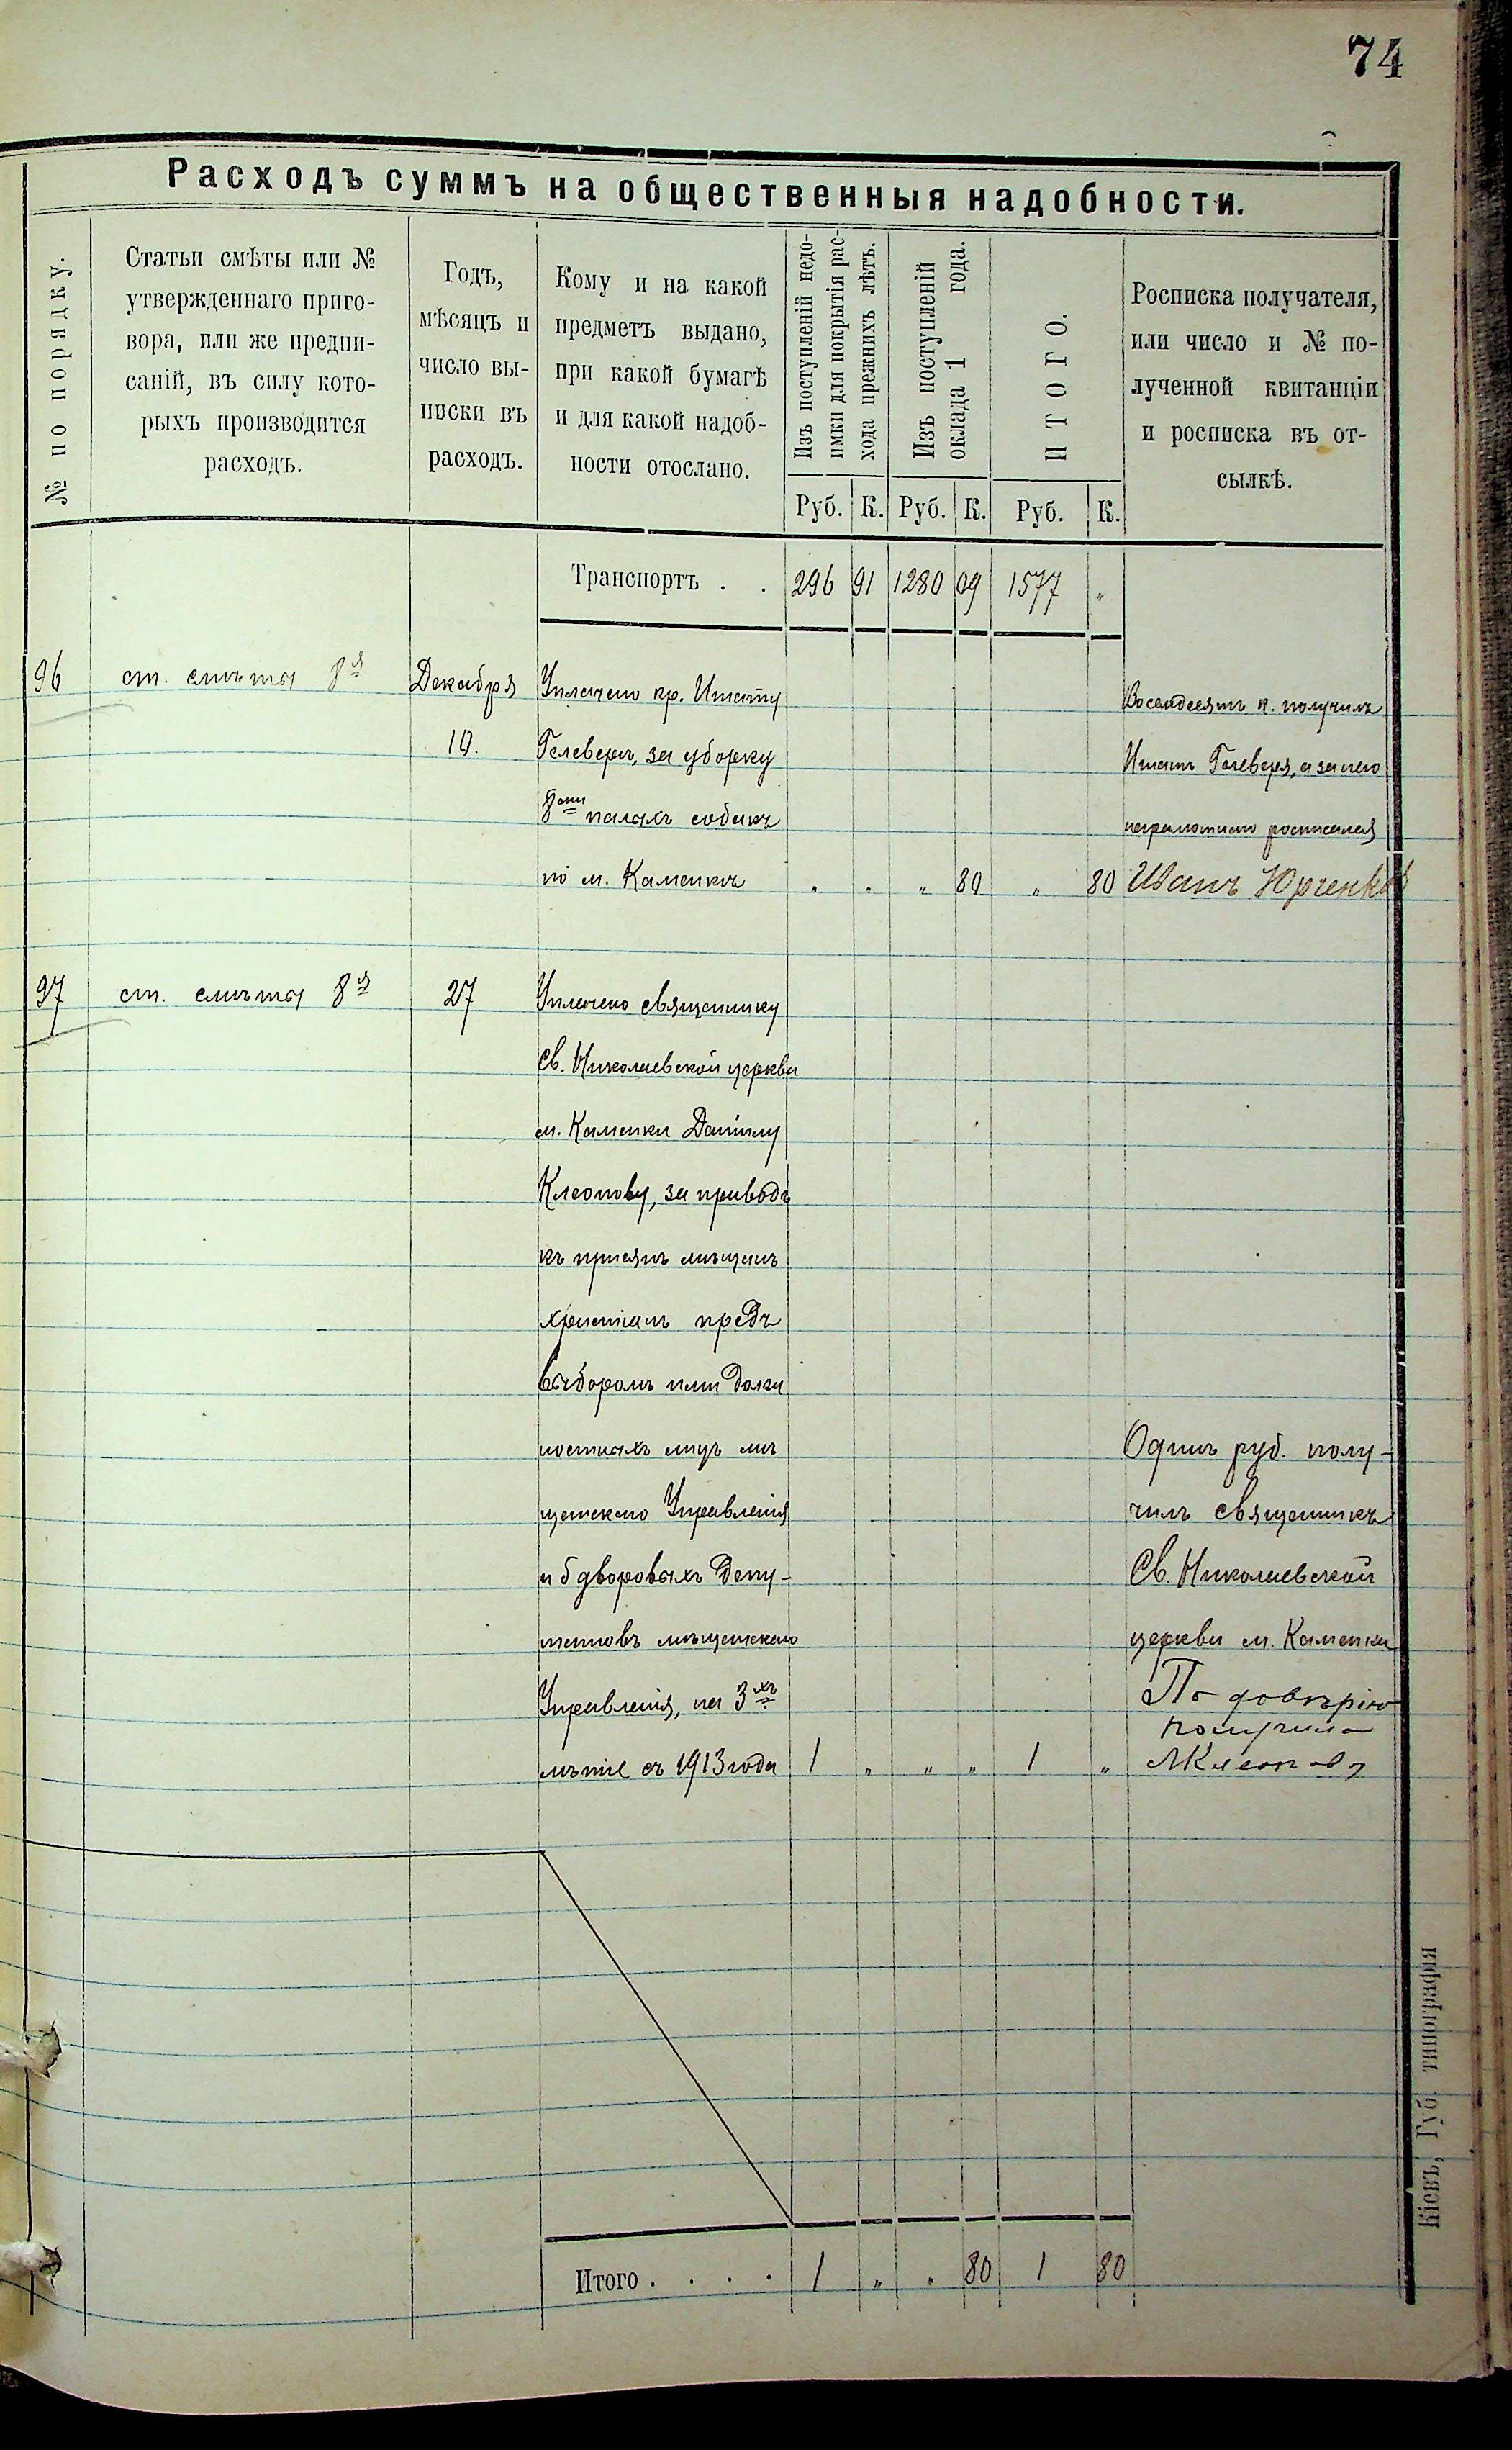 74
Расходъ суммъ на общественныя надобности.
№ по порядку.
Статьи смѣты или №
утвержденнаго приго-
вора, или же предпи-
саній, въ силу кото-
рыхъ производится
расходъ.
Годъ,
мѣсяцъ и
число вы-
писки въ
расходъ.
Кому и на какой
предметъ выдано,
при какой бумагѣ
и для какой надоб-
ности отослано.
Изъ поступленій недо-
имки для покрытія рас-
хода прежнихъ лѣтъ.
Изъ поступленій
оклада 1 года.
ИТОГО.
Росписка получателя,
или число и № по-
лученной квитанціи
и росписка въ от-
сылкѣ.
Руб. К. Руб. К. Руб. К.
Транспортъ . . 296 91 1280 09 1577 „
96 ст. смѣты 8я Декабря Уплачено кр. Игнату
10. Гелевери, за уборку
8ми палахъ собакъ
по м. Каменкѣ „ „ „ 80 „ 80
Восемдесятъ к. получилъ
Игнатъ Гелеверя, а за него
неграмотнаго росписался
Иванъ Юрченковъ
97 ст. смѣты 8я 27 Уплачено священнику
Св. Николаевской церкви
м. Каменки Даніилу
Клеопову, за приводъ
къ присягѣ мѣщанъ
христіанъ предъ
выборомъ ими долж
ностныхъ лицъ мѣ
щанскаго Управленія
и 5 дворовыхъ депу-
татовъ мѣщанскаго
Управленія, на 3хъ
лѣтіе съ 1913 года 1 „ „ „ 1 „
Одинъ руб. полу-
чилъ священникъ
Св. Николаевской
церкви м. Каменки
По довѣрію
получила
Клеопова
Итого . . . . 1 „ „ 80 1 80
Кіевъ, Губ. типографія